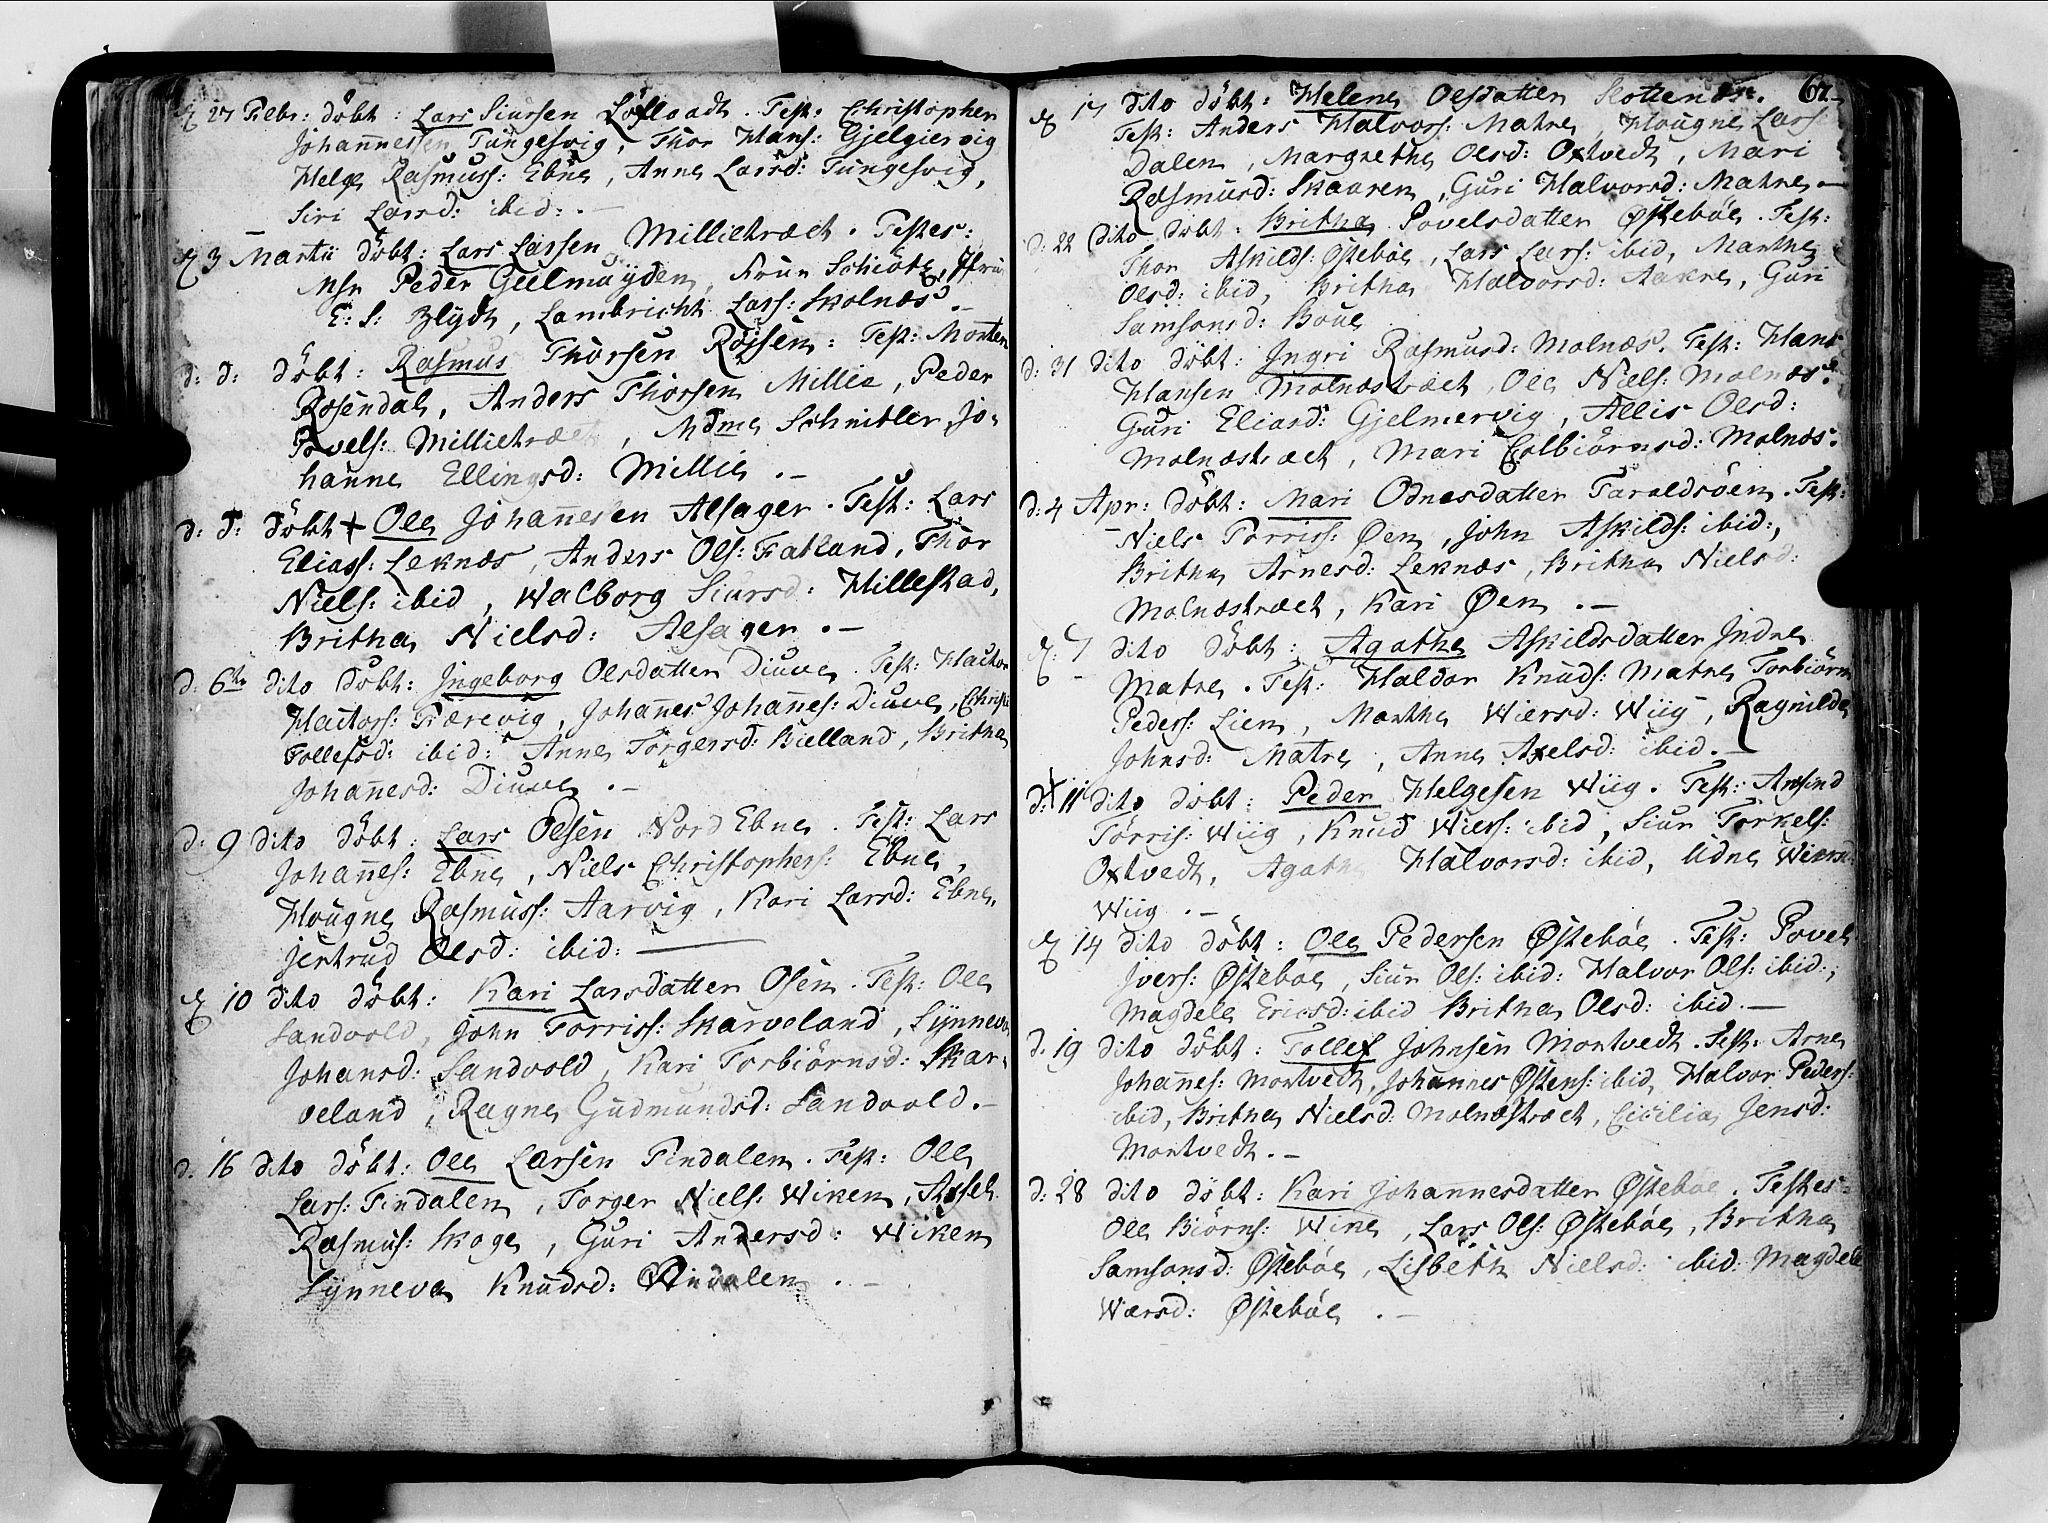 27 Febr: döbt: Lars Siursen Løfloadt. Test: Christopher
Johannessen Tungesvig, Thor Hans: Gjelgiervig
Helge Rasmuss: Ebne, Anne Larsd: Tungesvig,
Siri Larsd: ibid: .-
3 Martii döbt: Lars Larsen Millietræet. Testes:
Msr Peder Gielmuyden, Frue Schiøtz, Jfru
E: S: Blydt, Lambricht Lars: Skolnæs .-
d: d: döbt: Rasmus Thorsen Röjsen: Test: Morten
Rosendal, Anders Thorsen Millie, Peder
Povels: Millietræet, Mdme Schnitler, Jo-
hanne Ellingsd: Millie .-
d: d: döbt + Ole Johannesen Alsager. Test: Lars
Eliass: Leknæs, Anders Ols: Fatland, Thor
Niels: ibid, Walborg Siursd: Hillestad,
Britha Nielsd: Alsager .-
d: 6te dito döbt: Ingeborg Olsdatter Diuve. Test: Hactor
Hactors: Færevig, Johannes Johannes: Diuve, Christi
Tollefsd: ibid: Anne Torgersd: Bielland, Britha
Johannesd: Diuve .-
d: 9 dito döbt: Lars Olsen Nord Ebne. Test: Lars
Johannes: Ebne, Niels Christophers: Ebne,
Hougne Rasmuss: Aarvig, Kari Larsd: Ebne,
Jertrud Olsd: ibid: —
10 dito döbt: Kari Larsdatter Osen. Test: Ole
Sandvold, John Torriss: Skarveland, Synneva
Johansd: Sandvold, Kari Torbiörnsd: Skar-
veland, Ragne Gudmundsd: Sandvold .-
d: 16 dito döbt: Ole Larsen Findalen. Test: Ole
Lars: Findalen, Torger Niels: Wiken, Axsel
Rasmus: Skoge, Guri Andersd: Wiken
Synneva Knudsd: Findalen .-
62
17 dito döbt: Helene Olsdatter Slottenæs.
Test: Anders Halvors: Matre, Hougne Lars:
Dalen, Margrethe Olsd: Oxtvedt, Mari
Rasmusd: Skaaren, Guri Halvorsd: Matre .-
d: 22 dito döbt: Britha Povelsdatter Østebøe. Test:
Thor Askilds: Østebøe, Lars Lars: ibid, Marthe
Olsd: ibid, Britha Halvorsd: Aakre, Guri
Samsonsd: Boue
d: 31 dito döbt: Ingri Rasmusd: Molnæs. Test: Hans
Hansen Molnæstræet, Ole Niels: Molnæs:
Guri Eliasd: Gjelmervig, Allis Olsd:
Molnæstræet, Mari Colbiörnsd: Molnæs.
d: 4 Apr: döbt: Mari Odnesdatter Taraldsöen. Test:
Niels Torriss: Øen, John Askilds: ibid:,
Britha Arnesd: Leknæs, Britha Nielsd:
Molnæstræet, Kari Øen .-
7 dito döbt: Agathe Askildsdatter Indre
Matre. Test: Haldor Knuds: Matre Torbiörn
Peders: Lien, Marthe Wiersd: Wiig, Ragnilde
Johnsd: Matre, Anne Axelsd: ibid .-
d: 11 dito döbt: Peder Helgesen Wiig. Test: Amsind
Torris: Wiig, Knud Wiers: ibid, Siur Torkels:
Oxtvedt, Agathe Halvorsd: ibid, Udne Wiersd:
Wiig .-
14 dito döbt: Ole Pedersen Østebøe. Test: Povel
Ivers: Østebøe, Siur Ols: ibid: Halvor Ols: ibid:,
Magdele Ericsd: ibid Britha Olsd: ibid .—
d: 19 dito döbt: Tollef Johnsen Montvedt. Test: Arne
Johannes: Montvedt, Johannes Østens: ibid, Halvor Peders:
ibid, Britha Nielsd: Molnæstræet, Cicilia Jensd:
Montvedt .-
d: 28 dito döbt: Kari Johannesdatter Østebøe. Testes:
Ole Biörns: Wine, Lars Ols: Østebøe, Britha
Samsonsd: Østebøe, Lisbeth Nielsd: ibid: Magdele
Wærsd: Østebøe .-